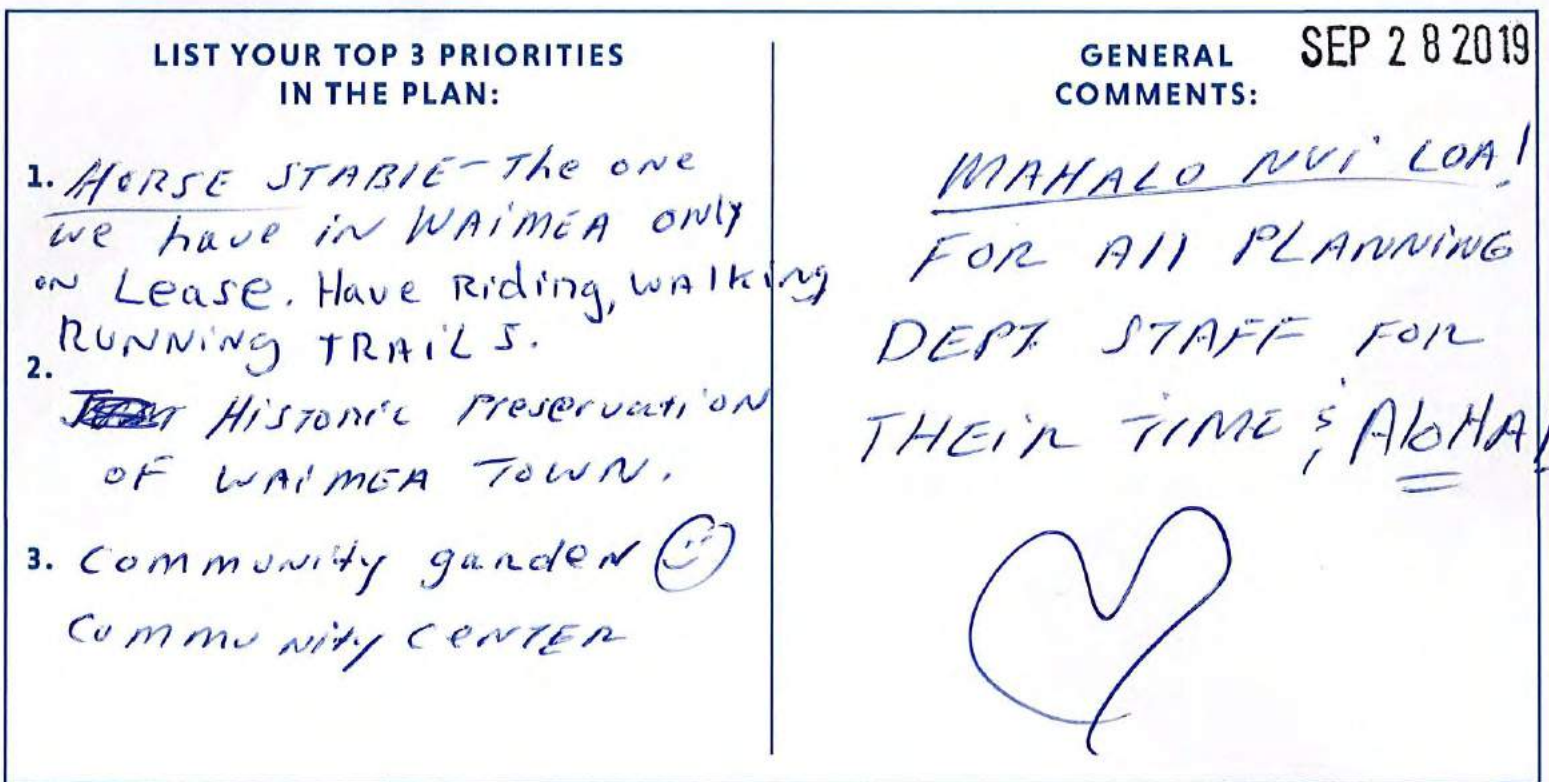 LIST YOUR TOP 3 PRIORITIES
IN THE PLAN:
1. HORSE STABlE - The one
we have iN WAiMEA ONly
oN Lease. Have Riding, WAlking
RUNNiNg TRAiLS.
2.
HiSTORiC PreservatiON
OF WAiMEA TOWN.
3. CommuNity gardeN
CommuNity CeNTER
GENERAL
COMMENTS:
SEP 28 2019
MAHALO NUi LOA!
FOR All PLANNiNG
DEPT STAFF FOR
THEiR TiME & AloHA!